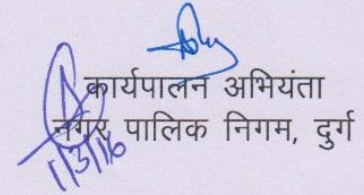 कार्यपालन अभियंता
नगर पालिक निगम, दुर्ग
1/3/16